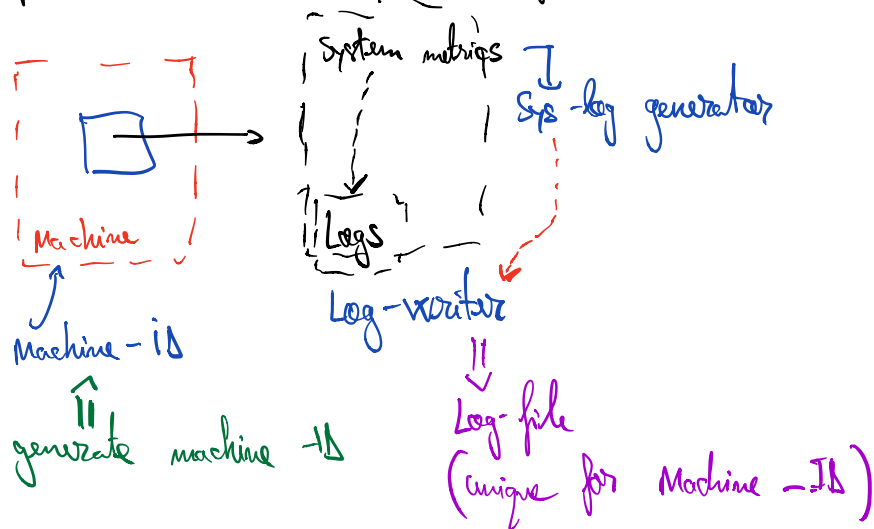 System metrics
Sys-log generator
Machine
Logs
Log-writer
Machine-iD
generate machine-ID
Log-file
(unique for Machine-ID)